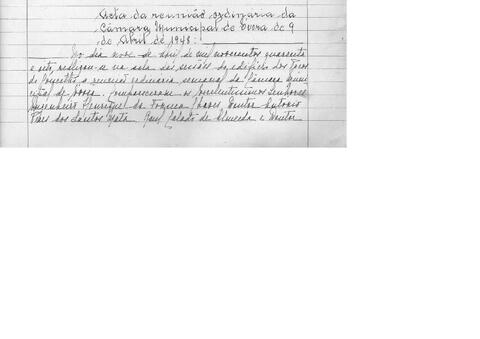 Acta da reunião ordinaria da
Câmara Municipal de Évora de 9
de Abril de 1948:
No dia nove de Abril de mil novecentos quarenta
e oito, realizou-se na sala das sessões do edificio dos Paços
do Concelho, a reunião ordinaria semanal da Câmara Muni-
cipal de Évora. Compareceram os Excelentissimos Senhores
Engenheiro Henrique da Fonseca Chaves, Doutor Antonio
Pires dos Santos, de Almeida e Doutor